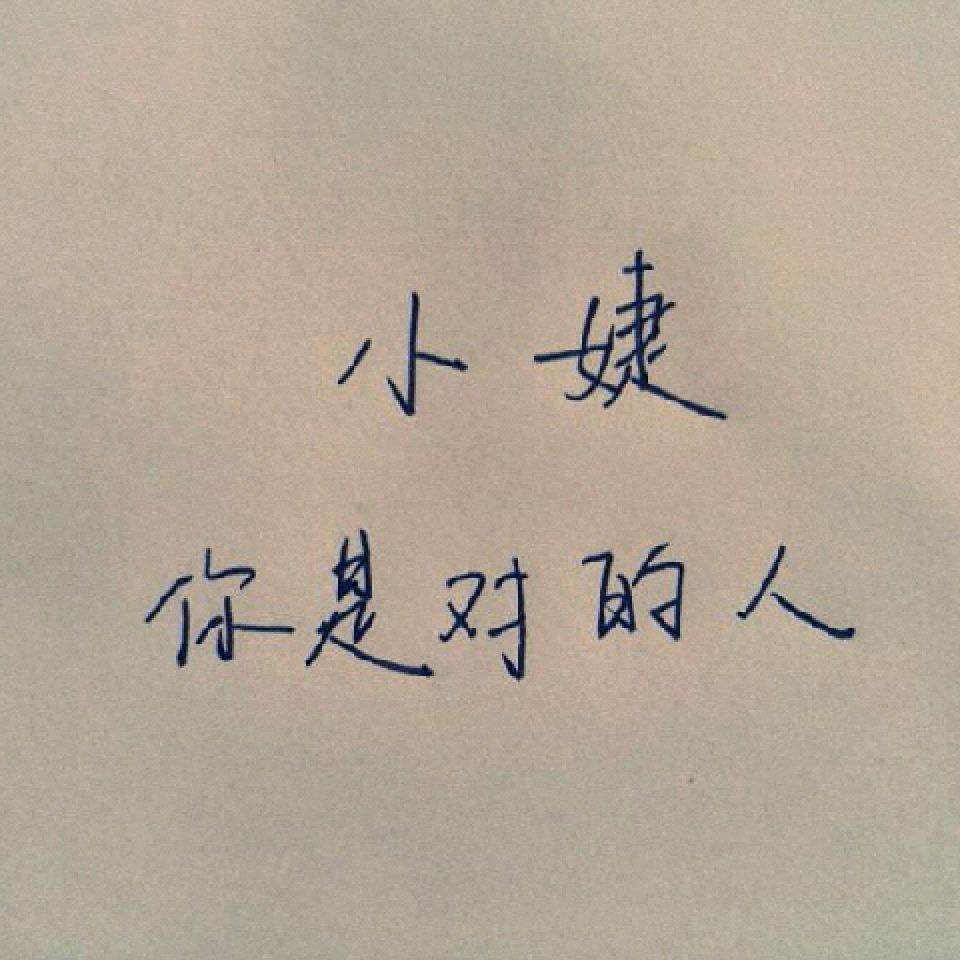 小婕
你是对的人